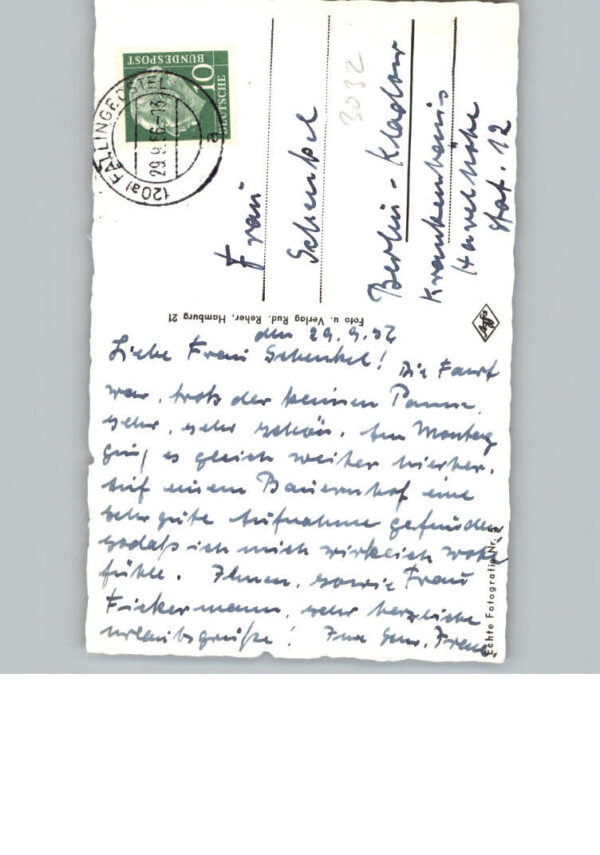 10
DEUTSCHE
BUNDESPOST
(20a) FALLINGBOSTEL
29.9.56-13
a
3032
Frau
Schenkel
Berlin-Kladow
Krankenhaus
Havelhöhe
Stat. 12
Foto u. Verlag Rud. Reher, Hamburg 21
Agfa
den 29.9.
Liebe Frau Schenkel! Die Fahrt
war, trotz der kleinen Panne,
sehr, sehr schön. Am Montag
ging es gleich weiter hierher.
Auf einem Bauernhof eine
sehr gute Aufnahme gefunden
sodaß ich mich wirklich wohl
fühle. Ihnen, sowie Frau
Fickermann, sehr herzliche
Urlaubsgrüße! Ihre
Echte Fotografie Nr.